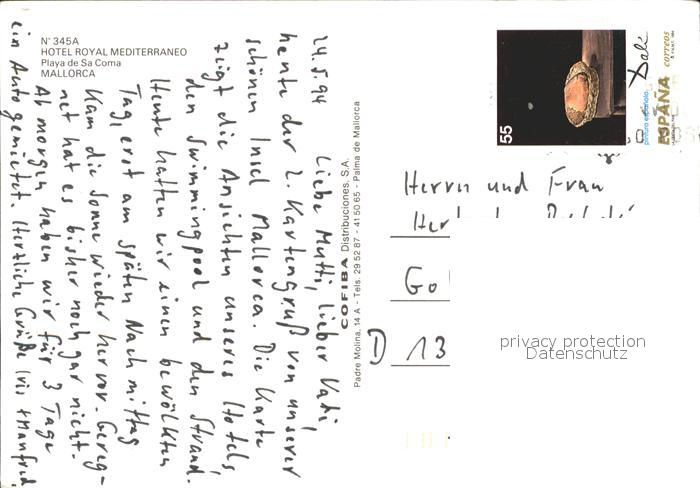 N° 345A
HOTEL ROYAL MEDITERRANEO
Playa de Sa Coma
MALLORCA
24.5.94
Liebe Mutti, lieber Vati,
heute der 2. Kartengruß von unserer
schönen Insel Mallorca. Die Karte
zeigt die Ansichten unseres Hotels,
den Swimmingpool und den Strand.
Heute hatten wir einen bewölkten
Tag, erst am späten Nachmittag
kam die Sonne wieder hervor. Gereg-
net hat es bisher noch gar nicht.
Ab morgen haben wir für 3 Tage
ein Auto gemietet. Herzliche Grüße Iris + Manfred
COFIBA Distribuciones, S.A.
Padre Molina, 14 A - Tels. 29 52 87 - 41 50 65 - Palma de Mallorca
55
Dalí
pintura española
ESPAÑA
correos
Herrn und Frau
Go
D 13
privacy protection
Datenschutz